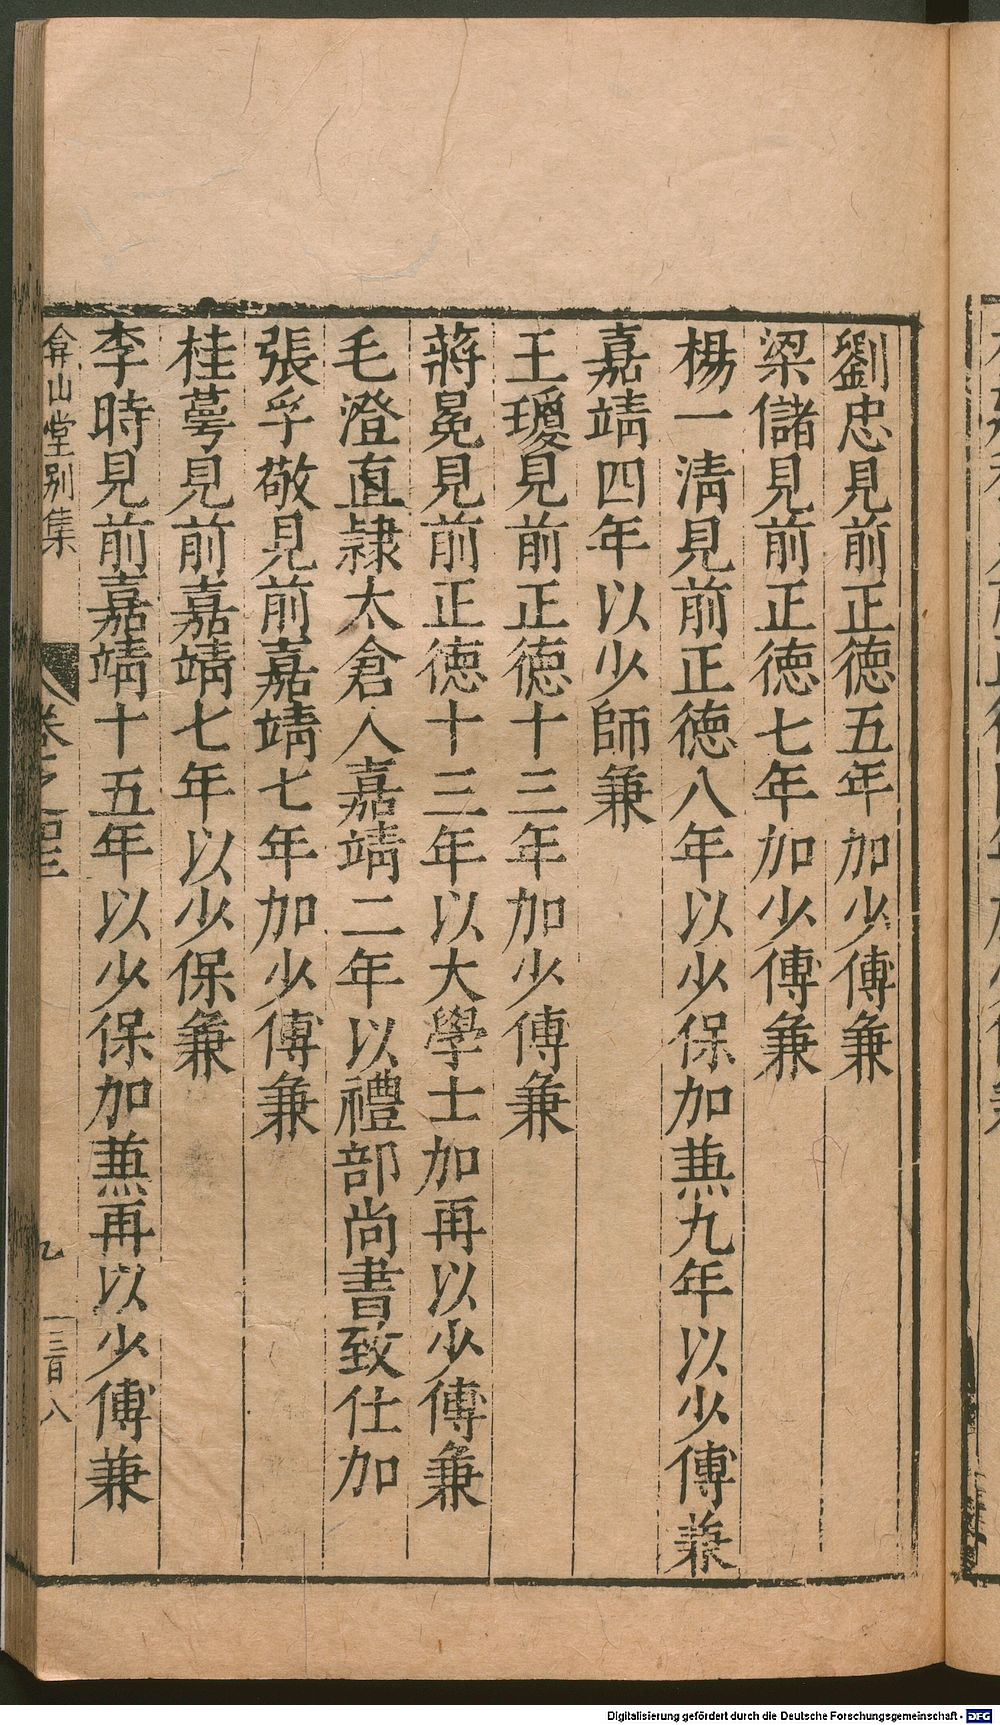 劉忠見前正徳五年加少傅兼
梁儲見前正徳七年加少傅兼
楊一清見前正徳八年以少保加兼九年以少傅兼
嘉靖四年以少師兼
王瓊見前正徳十三年加少傅兼
蔣冕見前正徳十三年以大學士加再以少傅兼
毛澄直隷太倉人嘉靖二年以禮部尚書致仕加
張孚敬見前嘉靖七年加少傅兼
桂蕚見前嘉靖七年以少保兼
李時見前嘉靖十五年以少保加兼再以少傅兼
弇山堂别集
卷之
三百八
Digitalisierung gefördert durch die Deutsche Forschungsgemeinschaft - DFG